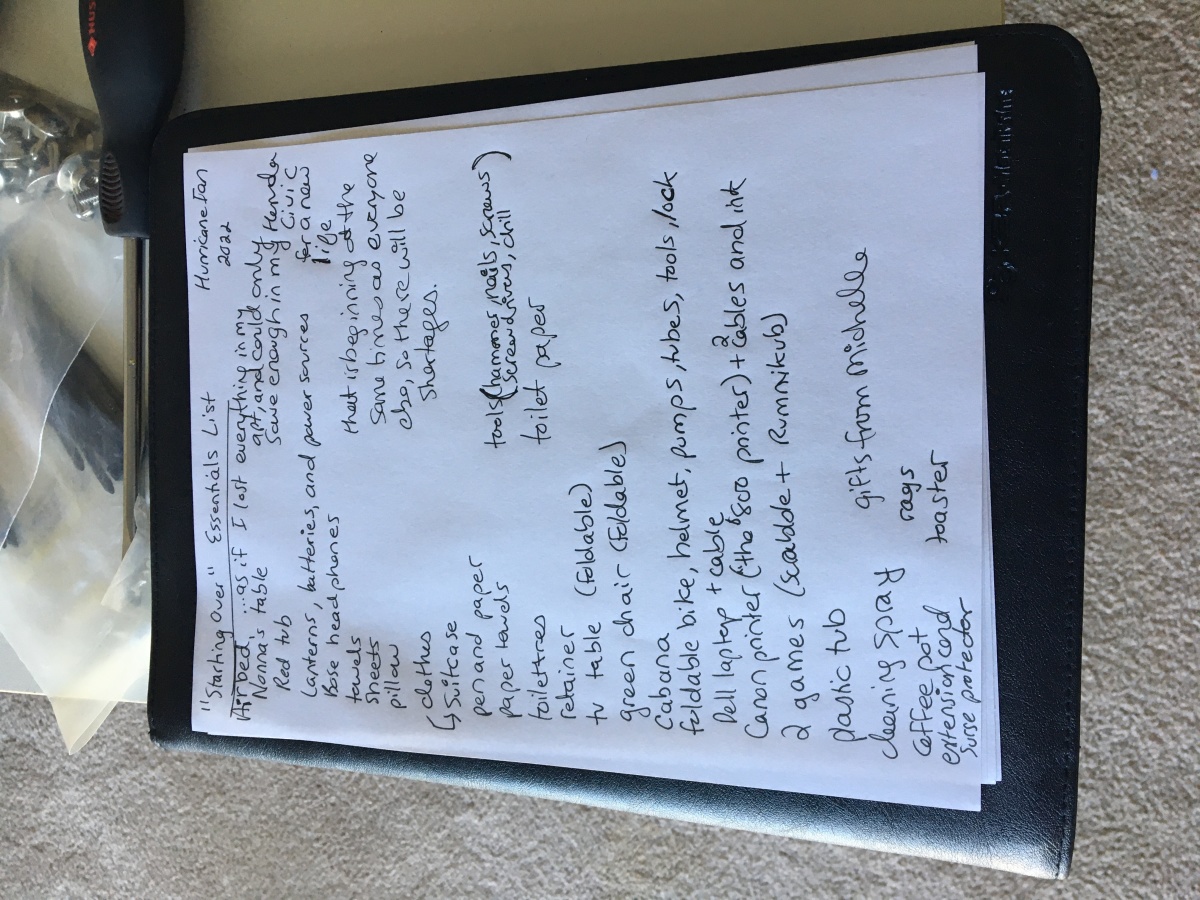 "Starting Over" Essentials List
Hurricane Ian
2022
Air bed ...as if I lost everything in my
apt, and could only
save enough in my Honda
Civic
for a new
life
that is beginning at the
same time as everyone
else, so there will be
shortages.
Nonna's table
Red tub
Lanterns, batteries, and power sources
Bose headphones
towels
Sheets
pillow
clothes
↳ Suitcase
pen and paper
paper towels
toiletries
retainer
tv table (foldable)
green chair (foldable)
Cabana
foldable bike, helmet, pumps, tubes, tools, lock
Dell laptop + cable
Canon printer (the $800 printer) + 2 cables and ink
2 games (Scrabble + Rummikub)
plastic tub
cleaning spray
coffee pot
extension cord
Surge protector
tools (hammer, nails, screws)
screwdrivers, drill
toilet paper
gifts from Michelle
rags
toaster
HUSKY